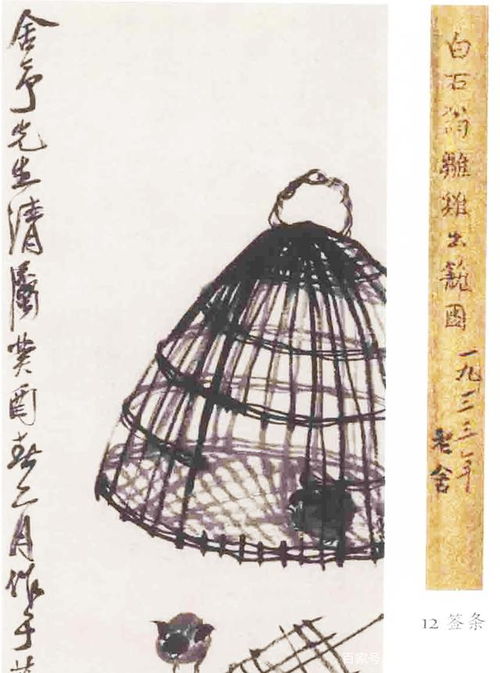 舍予先生清屬癸酉春三月作于
白石翁雛雞出籠圖
一九三三年
老舍
12 签条
百家号